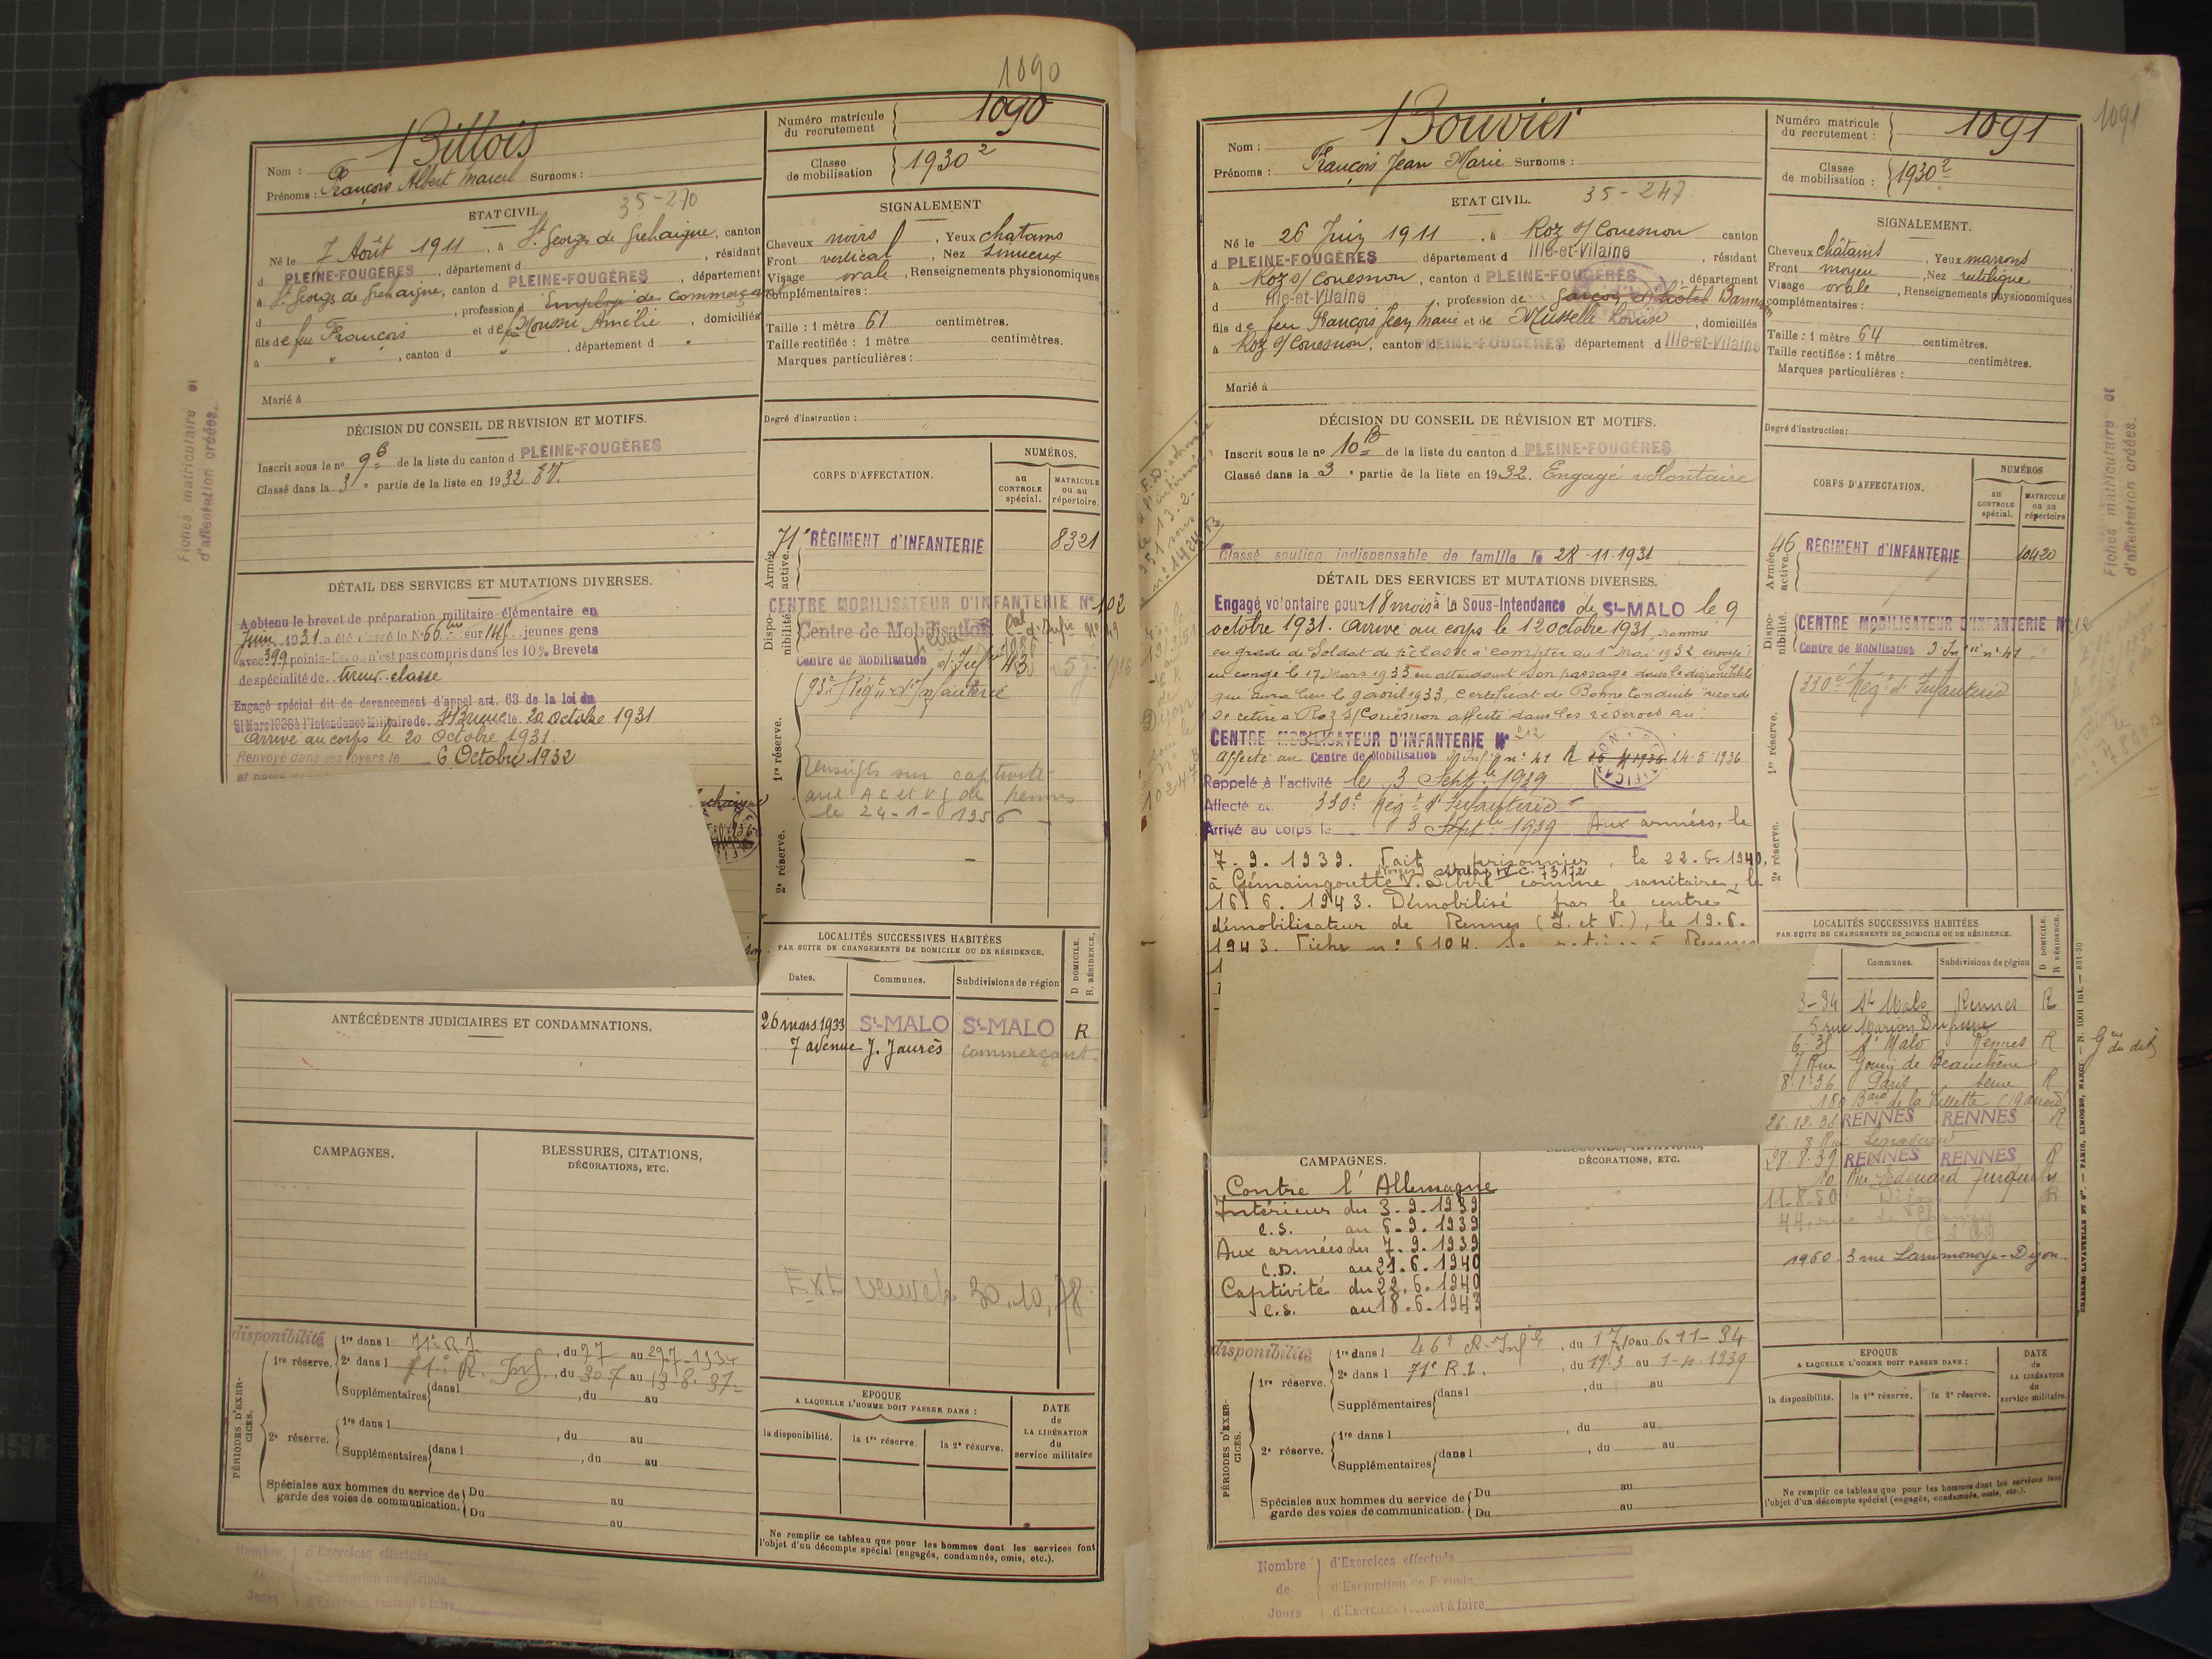 1090
Nom : Billois
Prénoms : François Albert Marcel Surnoms :
Numéro matricule du recrutement 1090
Classe de mobilisation 1930²
ETAT CIVIL. 35-270
Né le 7 Août 1911, à St Georges de Grehaigne, canton
d PLEINE-FOUGÈRES, département d , résidant
à St Georges de Grehaigne, canton d PLEINE-FOUGÈRES, département
d , profession d Employé de Commerçant
fils de feu François et de feu Amélie, domiciliés
à " , canton d " , département d "
Marié à
SIGNALEMENT
Cheveux noirs, Yeux chatains
Front vertical, Nez Sinueux
Visage ovale, Renseignements physionomiques
complémentaires :
Taille : 1 mètre 61 centimètres.
Taille rectifiée : 1 mètre centimètres.
Marques particulières :
Degré d'instruction :
DÉCISION DU CONSEIL DE REVISION ET MOTIFS.
Inscrit sous le no 9B de la liste du canton d PLEINE-FOUGÈRES
Classé dans la 3e partie de la liste en 1932 EV.
CORPS D'AFFECTATION.
NUMÉROS.
au CONTROLE spécial.
MATRICULE ou au répertoire.
Armée active.
71e RÉGIMENT d'INFANTERIE 8321
Disponibilité.
CENTRE MOBILISATEUR D'INFANTERIE No 102
Centre de Mobilisation
Centre de Mobilisation d'Infie 43
1re réserve.
93e Régt d'Infanterie
Renseigts sur captivité
aux A C et V G de Rennes
le 24-1-1956
2e réserve.
Fiches matriculaire et d'affectation créées.
DÉTAIL DES SERVICES ET MUTATIONS DIVERSES.
A obtenu le brevet de préparation militaire élémentaire en
Juin 1931 a été classé le No 66 sur 145 jeunes gens
avec 399 points n'est pas compris dans les 10% Brevets
de spécialité de tireur classe
Engagé spécial dit de devancement d'appel art. 63 de la loi du
31 Mars 1928 à l'Intendance Militaire de St Brieuc le 20 octobre 1931
Arrivé au corps le 20 Octobre 1931.
Renvoyé dans ses foyers le 6 Octobre 1932
LOCALITÉS SUCCESSIVES HABITÉES
PAR SUITE DE CHANGEMENTS DE DOMICILE OU DE RÉSIDENCE.
D DOMICILE. R. RÉSIDENCE.
Dates. Communes. Subdivisions de région
26 mars 1933 St-MALO St-MALO R
7 avenue J. Jaurès Commerçant
Ext 30.10.78
ANTÉCÉDENTS JUDICIAIRES ET CONDAMNATIONS.
CAMPAGNES.
BLESSURES, CITATIONS, DÉCORATIONS, ETC.
PÉRIODES D'EXERCICES.
disponibilité
1re réserve.
1re dans l 71e R.I. , du 9 7 au 29.7-1934
2e dans l 71e R. Inf. , du 30 7 au 19-8-37
Supplémentaires dans l , du au
2e réserve.
1re dans l , du au
Supplémentaires dans l , du au
Spéciales aux hommes du service de garde des voies de communication.
Du au
Du au
EPOQUE
A LAQUELLE L'HOMME DOIT PASSER DANS :
la disponibilité. la 1re réserve. la 2e réserve.
DATE de LA LIBÉRATION du service militaire
Ne remplir ce tableau que pour les hommes dont les services font
l'objet d'un décompte spécial (engagés, condamnés, omis, etc.).
Nombre de Jours
d'Exercices effectués
d'Exemption de Période
d'Exercices restant à faire
1091
Nom : Bouvier
Prénoms : François Jean Marie Surnoms :
Numéro matricule du recrutement : 1091
Classe de mobilisation : 1930²
ETAT CIVIL. 35-247
Né le 26 Juin 1911, à Roz s/ Couesnon canton
d PLEINE-FOUGÈRES département d Ille-et-Vilaine, résidant
à Roz s/ Couesnon, canton d PLEINE-FOUGÈRES, département
d Ille-et-Vilaine, profession de Garçon d'hôtel Barman
fils de feu François Jean Marie et de Musselle Louise, domiciliés
à Roz s/ Couesnon, canton d PLEINE-FOUGÈRES, département d Ille-et-Vilaine
Marié à
SIGNALEMENT.
Cheveux châtains, Yeux marrons
Front moyen, Nez rectiligne
Visage ovale, Renseignements physionomiques
complémentaires :
Taille : 1 mètre 64 centimètres.
Taille rectifiée : 1 mètre centimètres.
Marques particulières :
Degré d'instruction :
DÉCISION DU CONSEIL DE RÉVISION ET MOTIFS.
Inscrit sous le no 10B de la liste du canton d PLEINE-FOUGÈRES
Classé dans la 3e partie de la liste en 1932. Engagé volontaire
Classé soutien indispensable de famille le 28-11-1931
CORPS D'AFFECTATION.
NUMÉROS
au CONTROLE spécial.
MATRICULE ou au répertoire
Armée active.
46 RÉGIMENT d'INFANTERIE 10420
Disponibilité.
CENTRE MOBILISATEUR D'INFANTERIE No 212
Centre de Mobilisation d'Inf no 41
1re réserve.
330e Régt d'Infanterie
2e réserve.
Fiches matriculaire et d'affectation créées.
DÉTAIL DES SERVICES ET MUTATIONS DIVERSES.
Engagé volontaire pour 18 mois à la Sous-Intendance de St-MALO le 9
octobre 1931. Arrivé au corps le 12 octobre 1931, nommé
au grade de Soldat de 1re classe à compter du 1er Mai 1932 envoyé
en congé le 17 Mars 1933 en attendant son passage dans la disponibilité
qui aura lieu le 9 avril 1933, Certificat de Bonne Conduite accordé
Se retire à Roz s/ Couësnon affecté dans les réserves au :
CENTRE MOBILISATEUR D'INFANTERIE No 212
Affecté au Centre de Mobilisation d'Inf no 41 24-5-1936
Rappelé à l'activité le 3 Septbre 1939
Affecté au 330e Régt d'Infanterie
Arrivé au corps le 3 Septbre 1939 Aux armées, le
7.9.1939. Fait prisonnier, le 22.6.1940,
(Vosges) Stalag IV C. 73172
à Gémaingoutte. Libéré comme sanitaire, le
16.6.1943. Démobilisé par le centre
démobilisateur de Rennes (I. et V.), le 19.6.
1943. Fiche no 6104. Se retire à Rennes
LOCALITÉS SUCCESSIVES HABITÉES
PAR SUITE DE CHANGEMENTS DE DOMICILE OU DE RÉSIDENCE.
D DOMICILE. R RÉSIDENCE.
Communes. Subdivisions de région
3-34 St Malo Rennes R
5 rue Marion Dufresne
6.35 St Malo Rennes R
7 Rue Gouin de Beauchène
8.1.36 Paris Seine R
180 Bard de la Villette (19 arrond)
26.12.36 RENNES RENNES R
8 Rue Legraverend
28.8.39 RENNES RENNES R
10 Rue Edouard Turquety
11-8-50 Dijon R
1960. 3 rue Lammonoye - Dijon.
CAMPAGNES.
DÉCORATIONS, ETC.
Contre l'Allemagne
Intérieur du 3.9.1939
C.S. au 6.9.1939
Aux armées du 7.9.1939
C.D. au 21.6.1940
Captivité du 22.6.1940
C.S. au 18.6.1943
PÉRIODES D'EXERCICES.
disponibilité
1re réserve.
1re dans l 46e R. Infie , du 17.10 au 6.11-34
2e dans l 71e R.I. , du 19.3 au 1-4-1939
Supplémentaires dans l , du au
2e réserve.
1re dans l , du au
Supplémentaires dans l , du au
Spéciales aux hommes du service de garde des voies de communication.
Du au
Du au
EPOQUE
A LAQUELLE L'HOMME DOIT PASSER DANS :
la disponibilité. la 1re réserve. la 2e réserve.
DATE de LA LIBÉRATION du service militaire
Ne remplir ce tableau que pour les hommes dont les services font
l'objet d'un décompte spécial (engagés, condamnés, omis, etc.).
CHARLES-LAVAUZELLE ET Cie. — PARIS, LIMOGES, NANCY. — N. 1001 int. — 831-30
Nombre de Jours
d'Exercices effectués
d'Exemption de Période
d'Exercices restant à faire